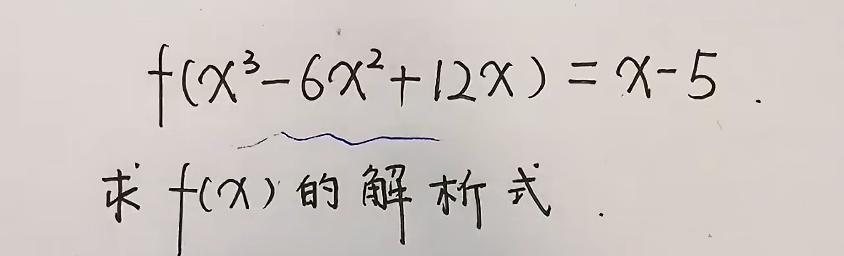 f(x³-6x²+12x)=x-5.
求f(x)的解析式.